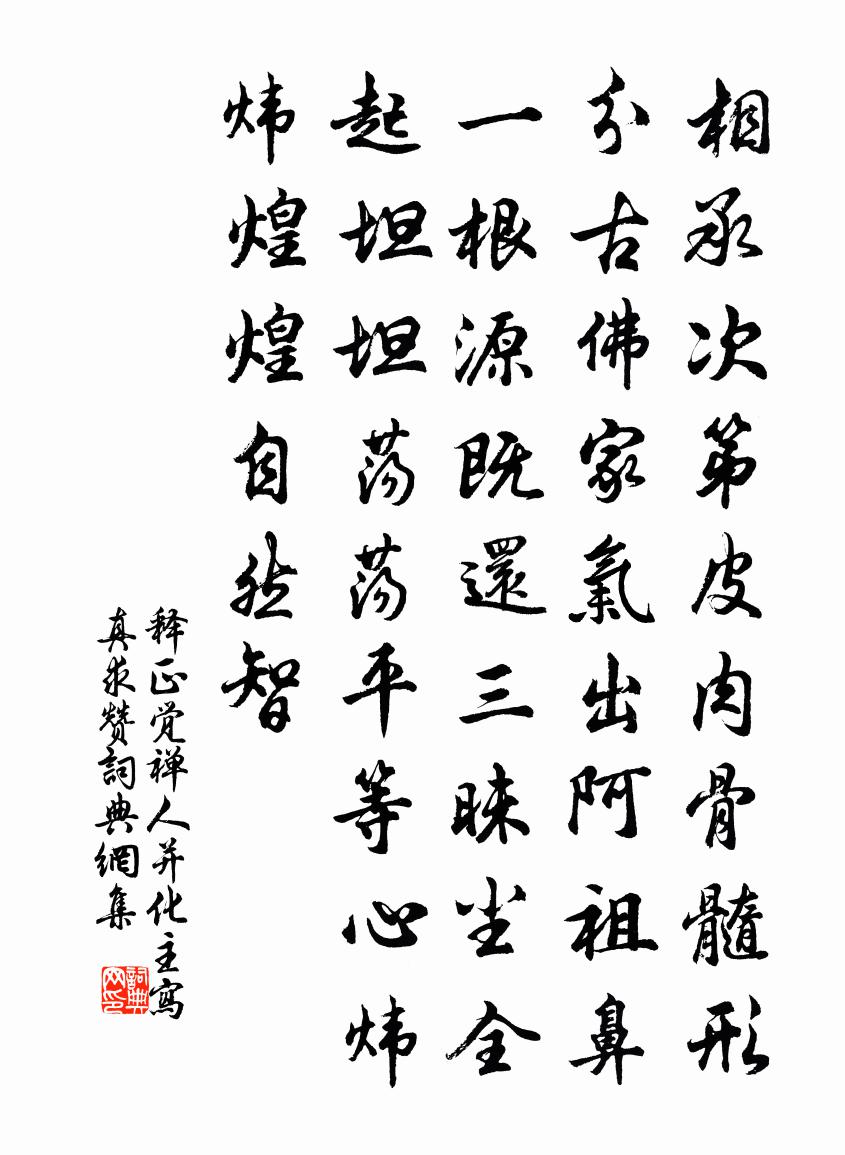 相承次第皮肉骨髓形
分古佛家氣出阿祖鼻
一根源既還三昧尘全
起坦坦荡荡平等心炜
炜煌煌自然智
释正觉禅人并化主寫
真求赞詞典網集
詞典网印